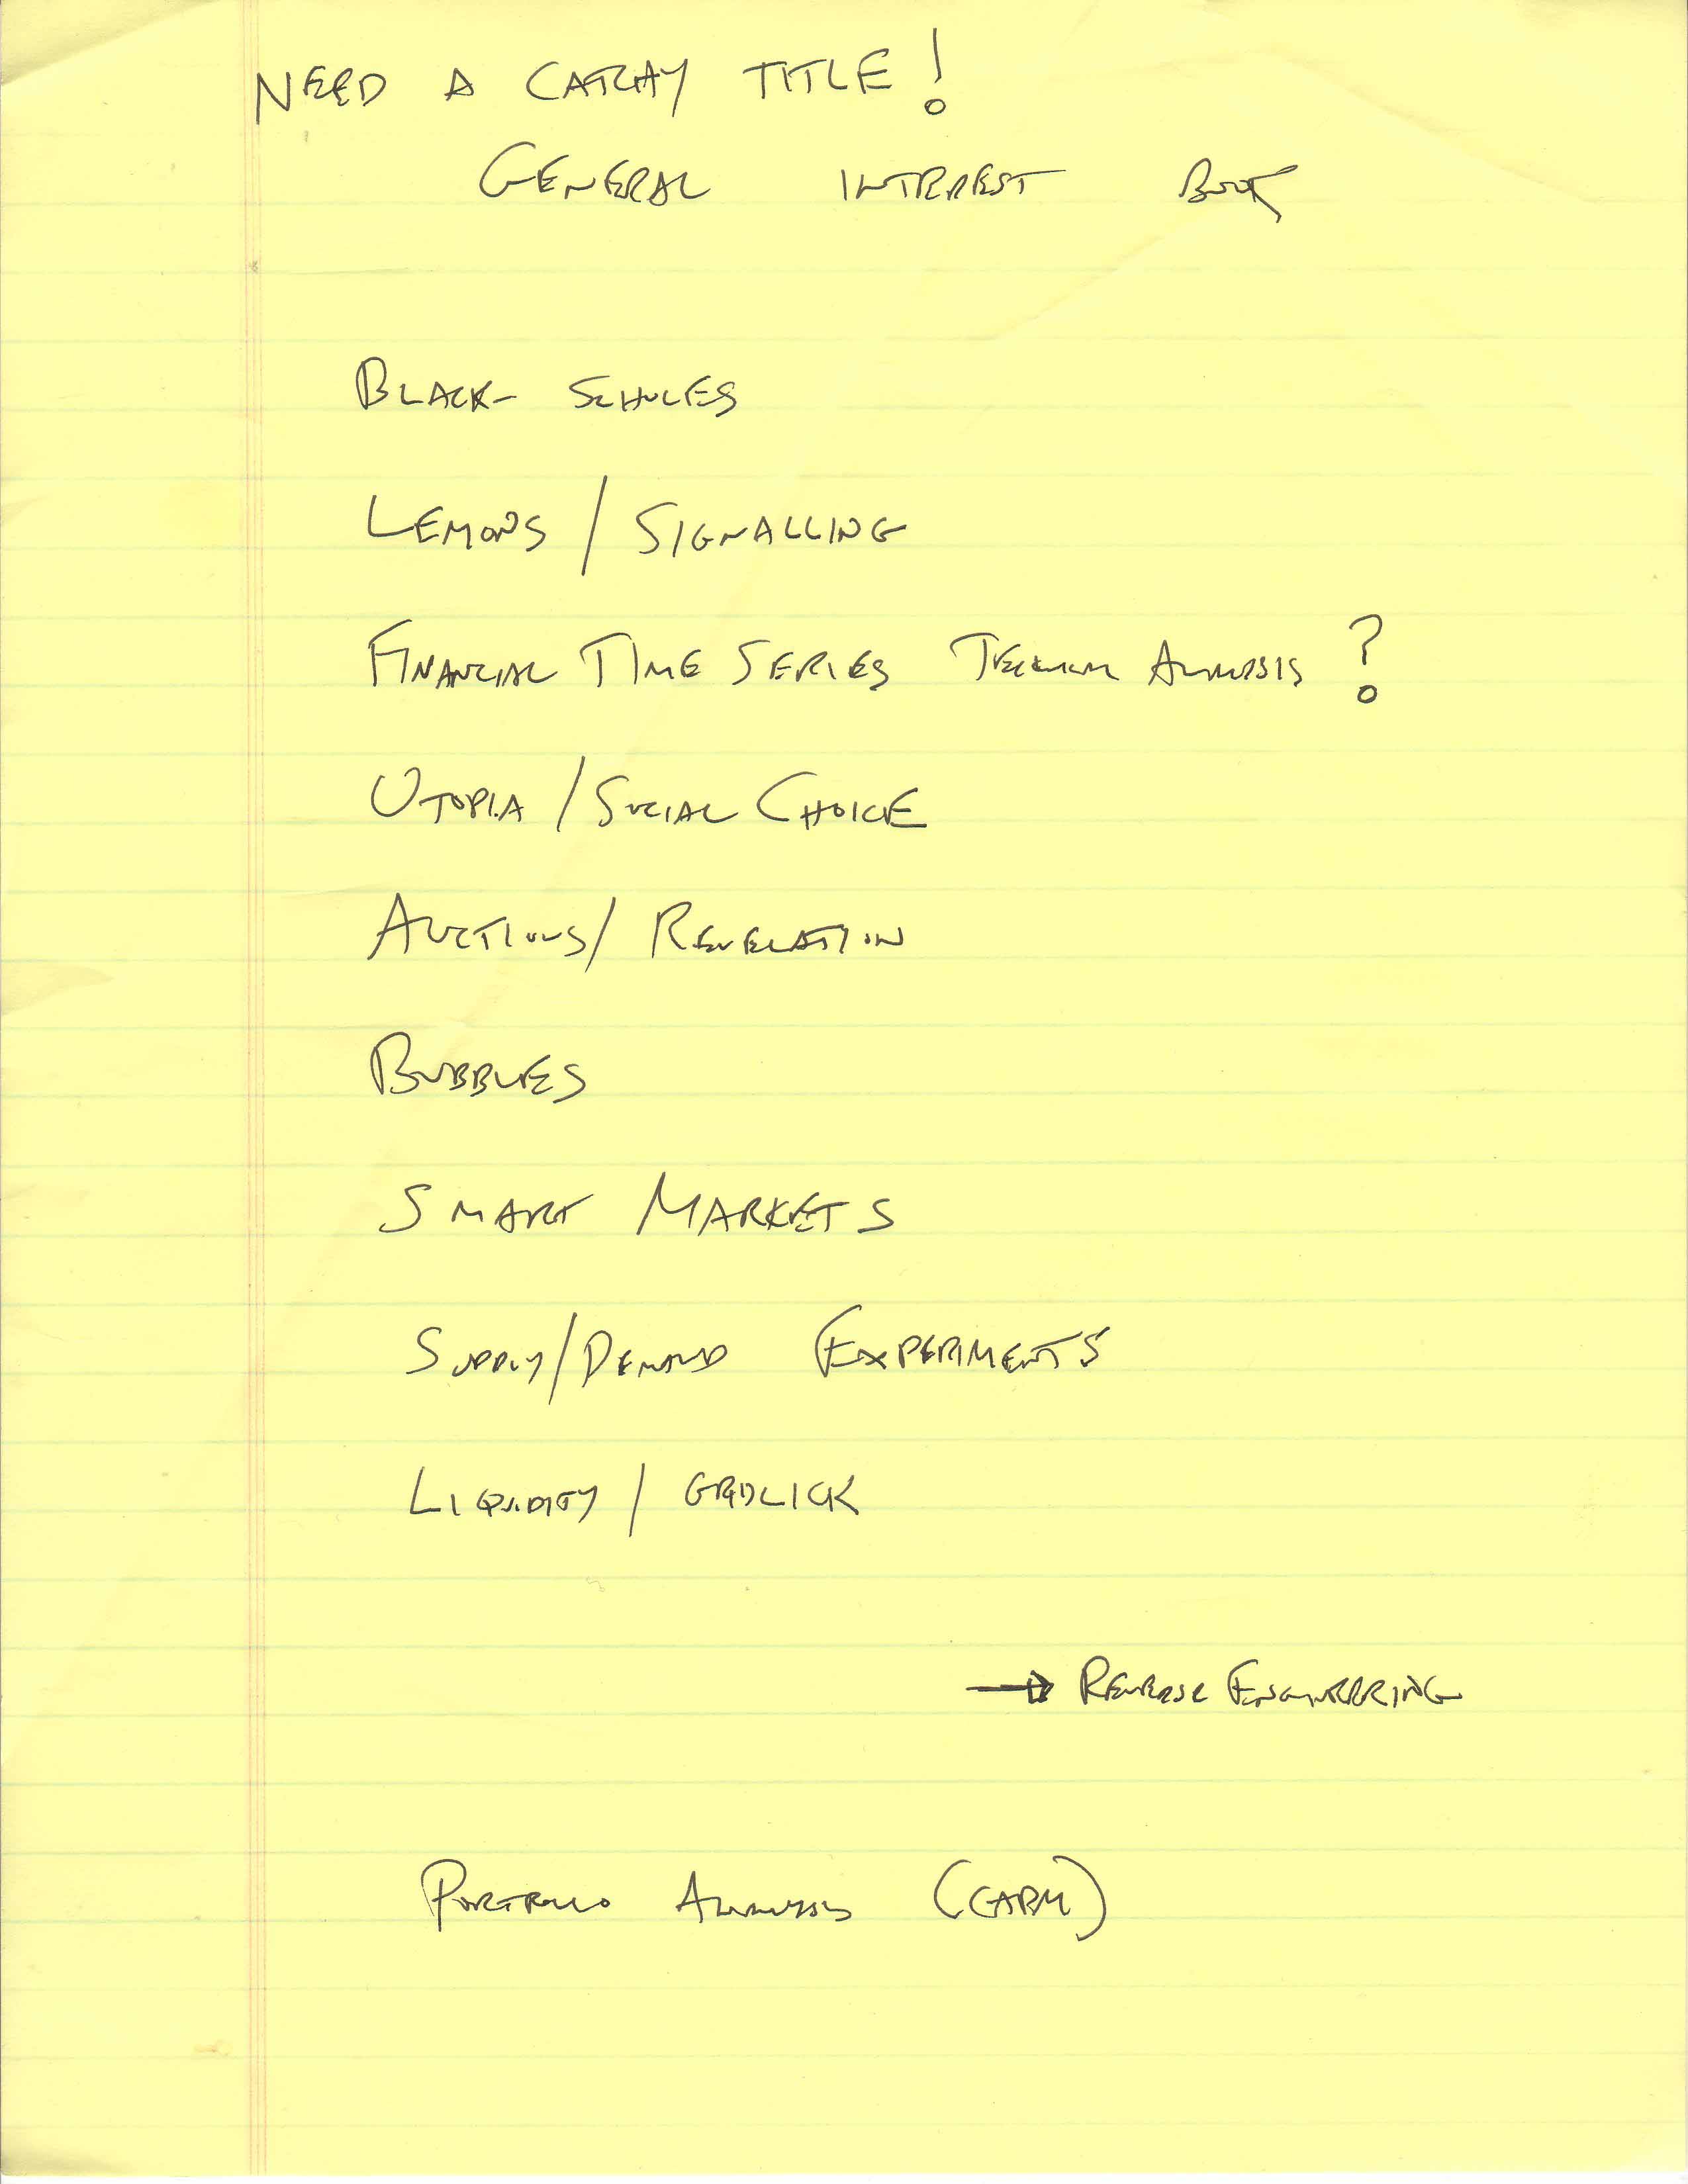 NEED A CATCHY TITLE!
GENERAL INTEREST BOOK
BLACK-SCHOLES
LEMONS / SIGNALLING
FINANCIAL TIME SERIES TECHNICAL ANALYSIS ?
UTOPIA / SOCIAL CHOICE
AUCTIONS / REVELATION
BUBBLES
SMART MARKETS
SUPPLY/DEMAND EXPERIMENTS
LIQUIDITY / GRIDLOCK
→ REVERSE ENGINEERING
PORTFOLIO ANALYSIS (CAPM)